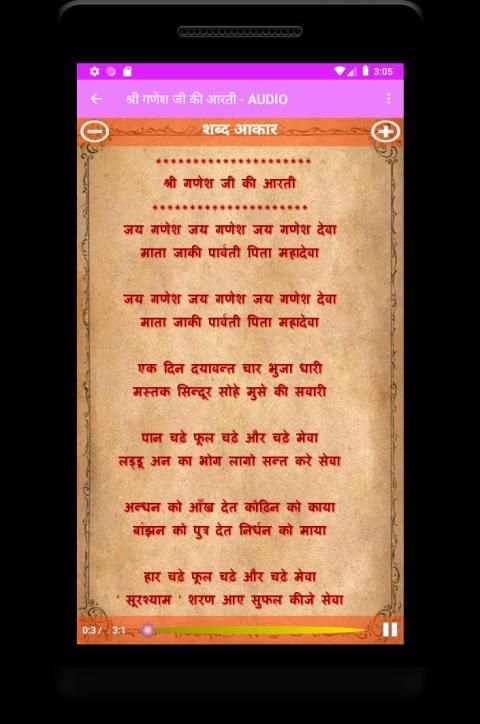 3:05
श्री गणेश जी की आरती - AUDIO
शब्द आकार
*********************
श्री गणेश जी की आरती
*********************
जय गणेश जय गणेश जय गणेश देवा
माता जाकी पार्वती पिता महादेवा
जय गणेश जय गणेश जय गणेश देवा
माता जाकी पार्वती पिता महादेवा
एक दिन दयावन्त चार भुजा धारी
मस्तक सिन्दूर सोहे मुसे की सवारी
पान चढे फूल चढे और चढे मेवा
लड्डू अन का भोग लागो सन्त करे सेवा
अन्धन को आँख देत कोढ़िन को काया
बांझन को पुत्र देत निर्धन को माया
हार चढे फूल चढे और चढे मेवा
' सूरश्याम ' शरण आए सुफल कीजे सेवा
0:3 / 3:1